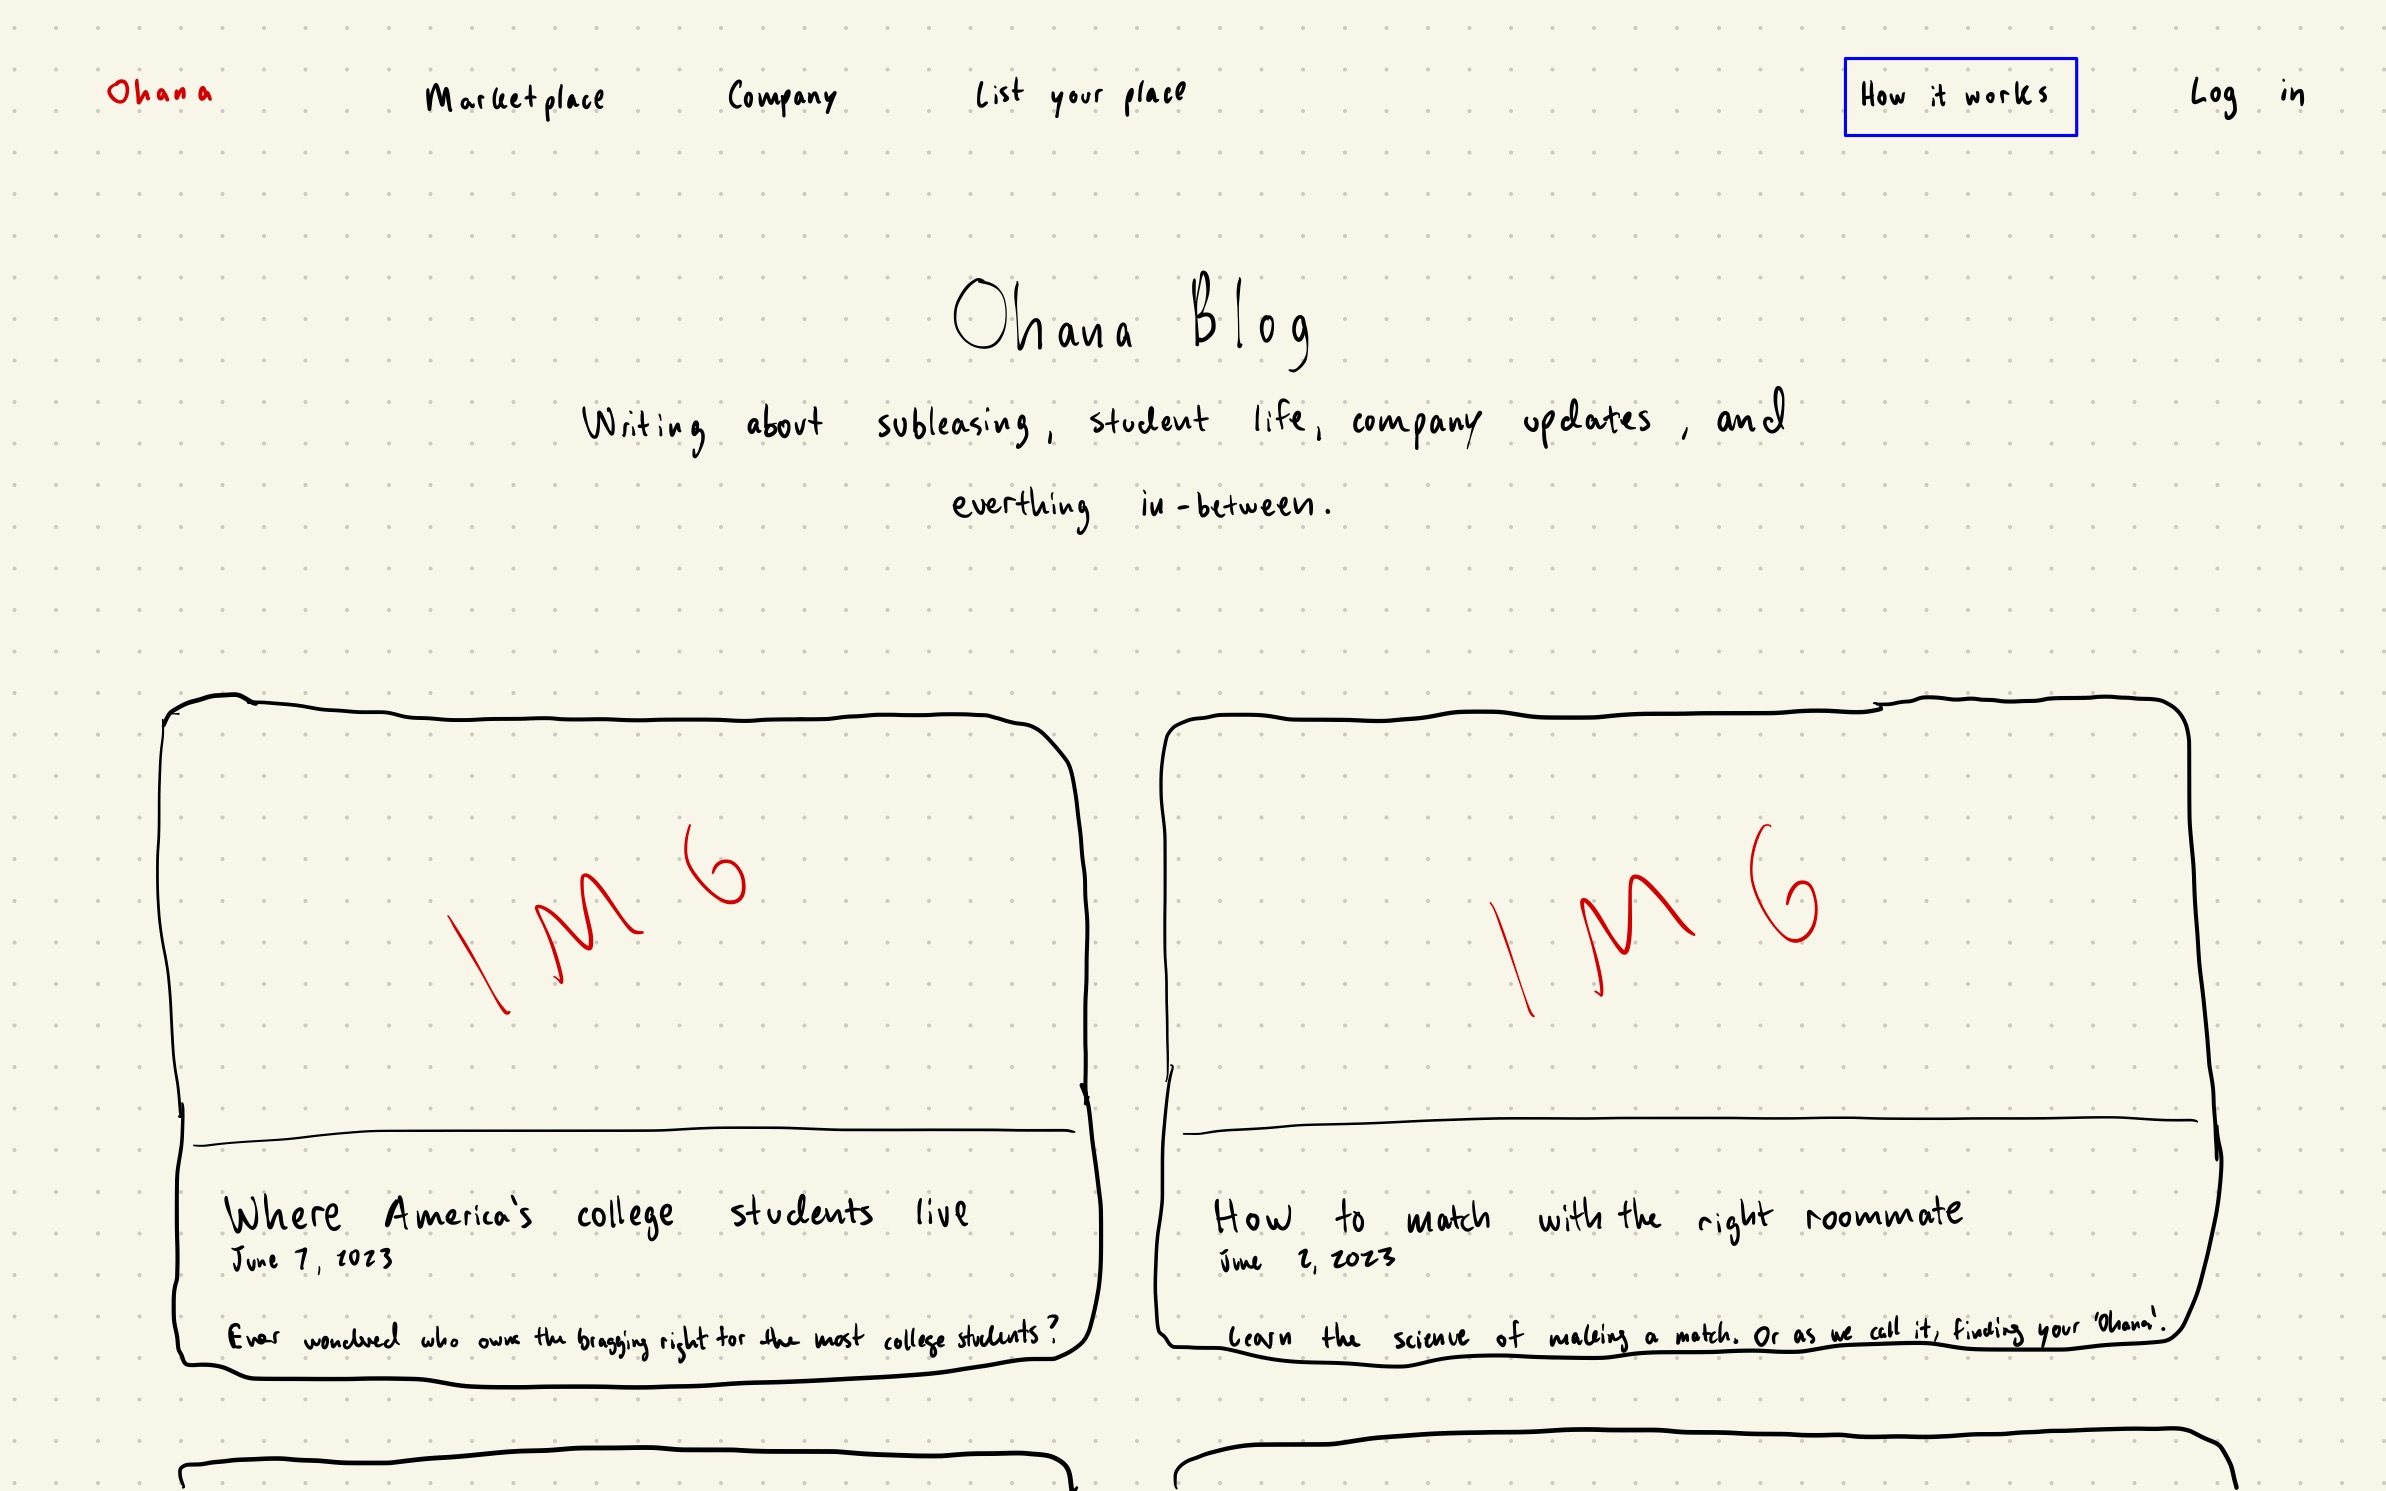 Ohana Marketplace Company List your place How it works Log in
Ohana Blog
Writing about subleasing, student life, company updates, and
everthing in-between.
IMG
IMG
Where America's college students live
June 7, 2023
Ever wondered who owns the bragging right for the most college students?
How to match with the right roommate
June 2, 2023
Learn the science of making a match. Or as we call it, finding your 'Ohana'.